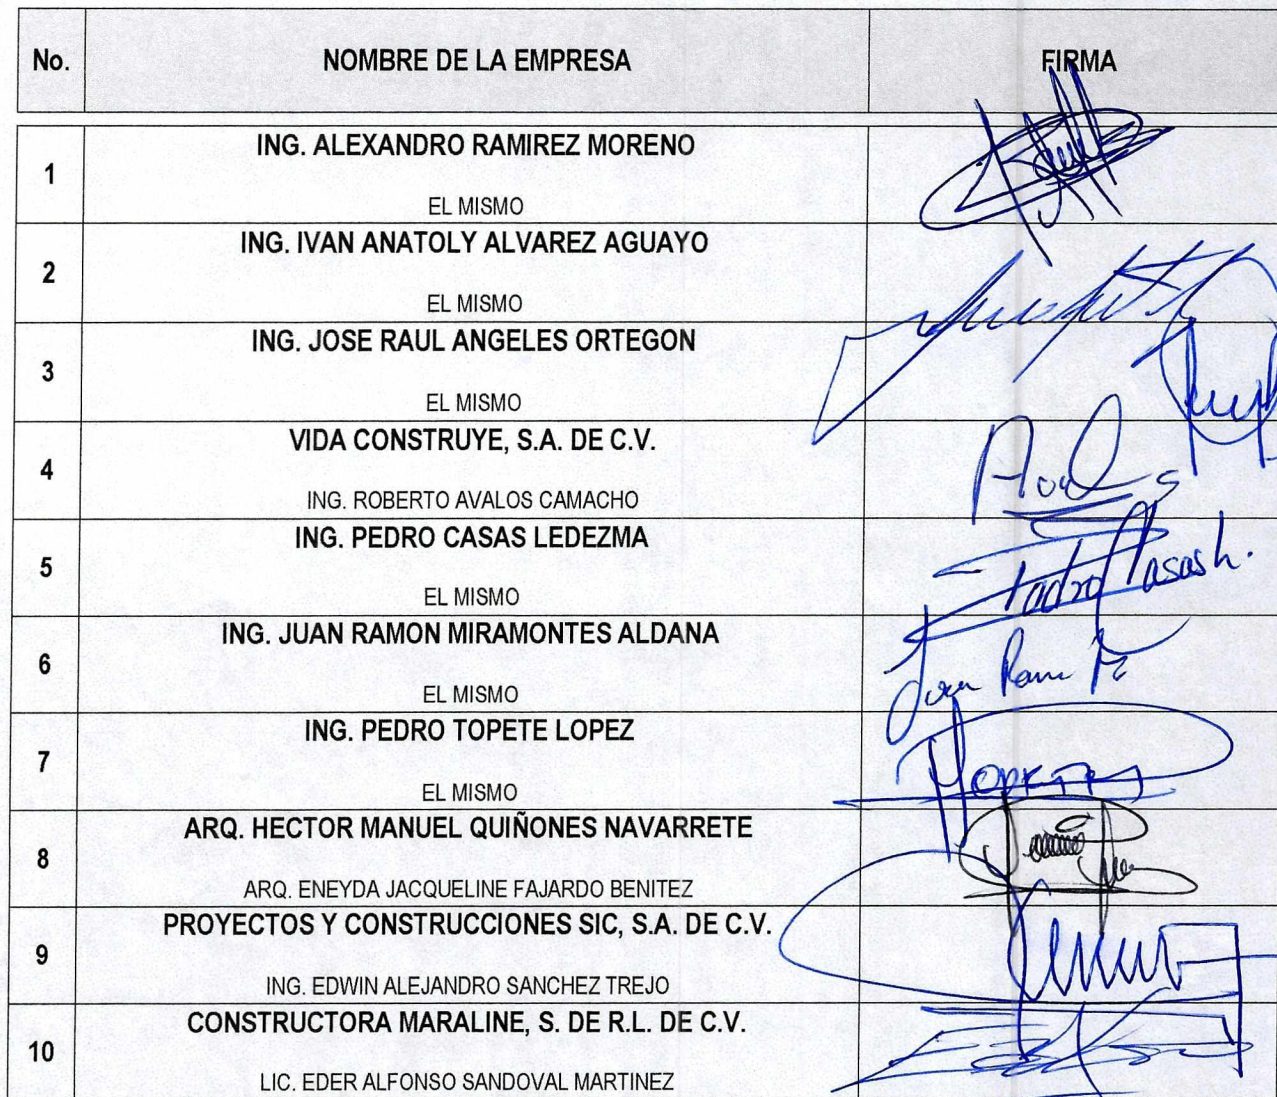 No. NOMBRE DE LA EMPRESA FIRMA
ING. ALEXANDRO RAMIREZ MORENO
1
EL MISMO
ING. IVAN ANATOLY ALVAREZ AGUAYO
2
EL MISMO
ING. JOSE RAUL ANGELES ORTEGON
3
EL MISMO
VIDA CONSTRUYE, S.A. DE C.V.
4
ING. ROBERTO AVALOS CAMACHO
ING. PEDRO CASAS LEDEZMA
5
EL MISMO
Pedro Casas L.
ING. JUAN RAMON MIRAMONTES ALDANA
6
EL MISMO
ING. PEDRO TOPETE LOPEZ
7
EL MISMO
ARQ. HECTOR MANUEL QUIÑONES NAVARRETE
8
ARQ. ENEYDA JACQUELINE FAJARDO BENITEZ
PROYECTOS Y CONSTRUCCIONES SIC, S.A. DE C.V.
9
ING. EDWIN ALEJANDRO SANCHEZ TREJO
CONSTRUCTORA MARALINE, S. DE R.L. DE C.V.
10
LIC. EDER ALFONSO SANDOVAL MARTINEZ